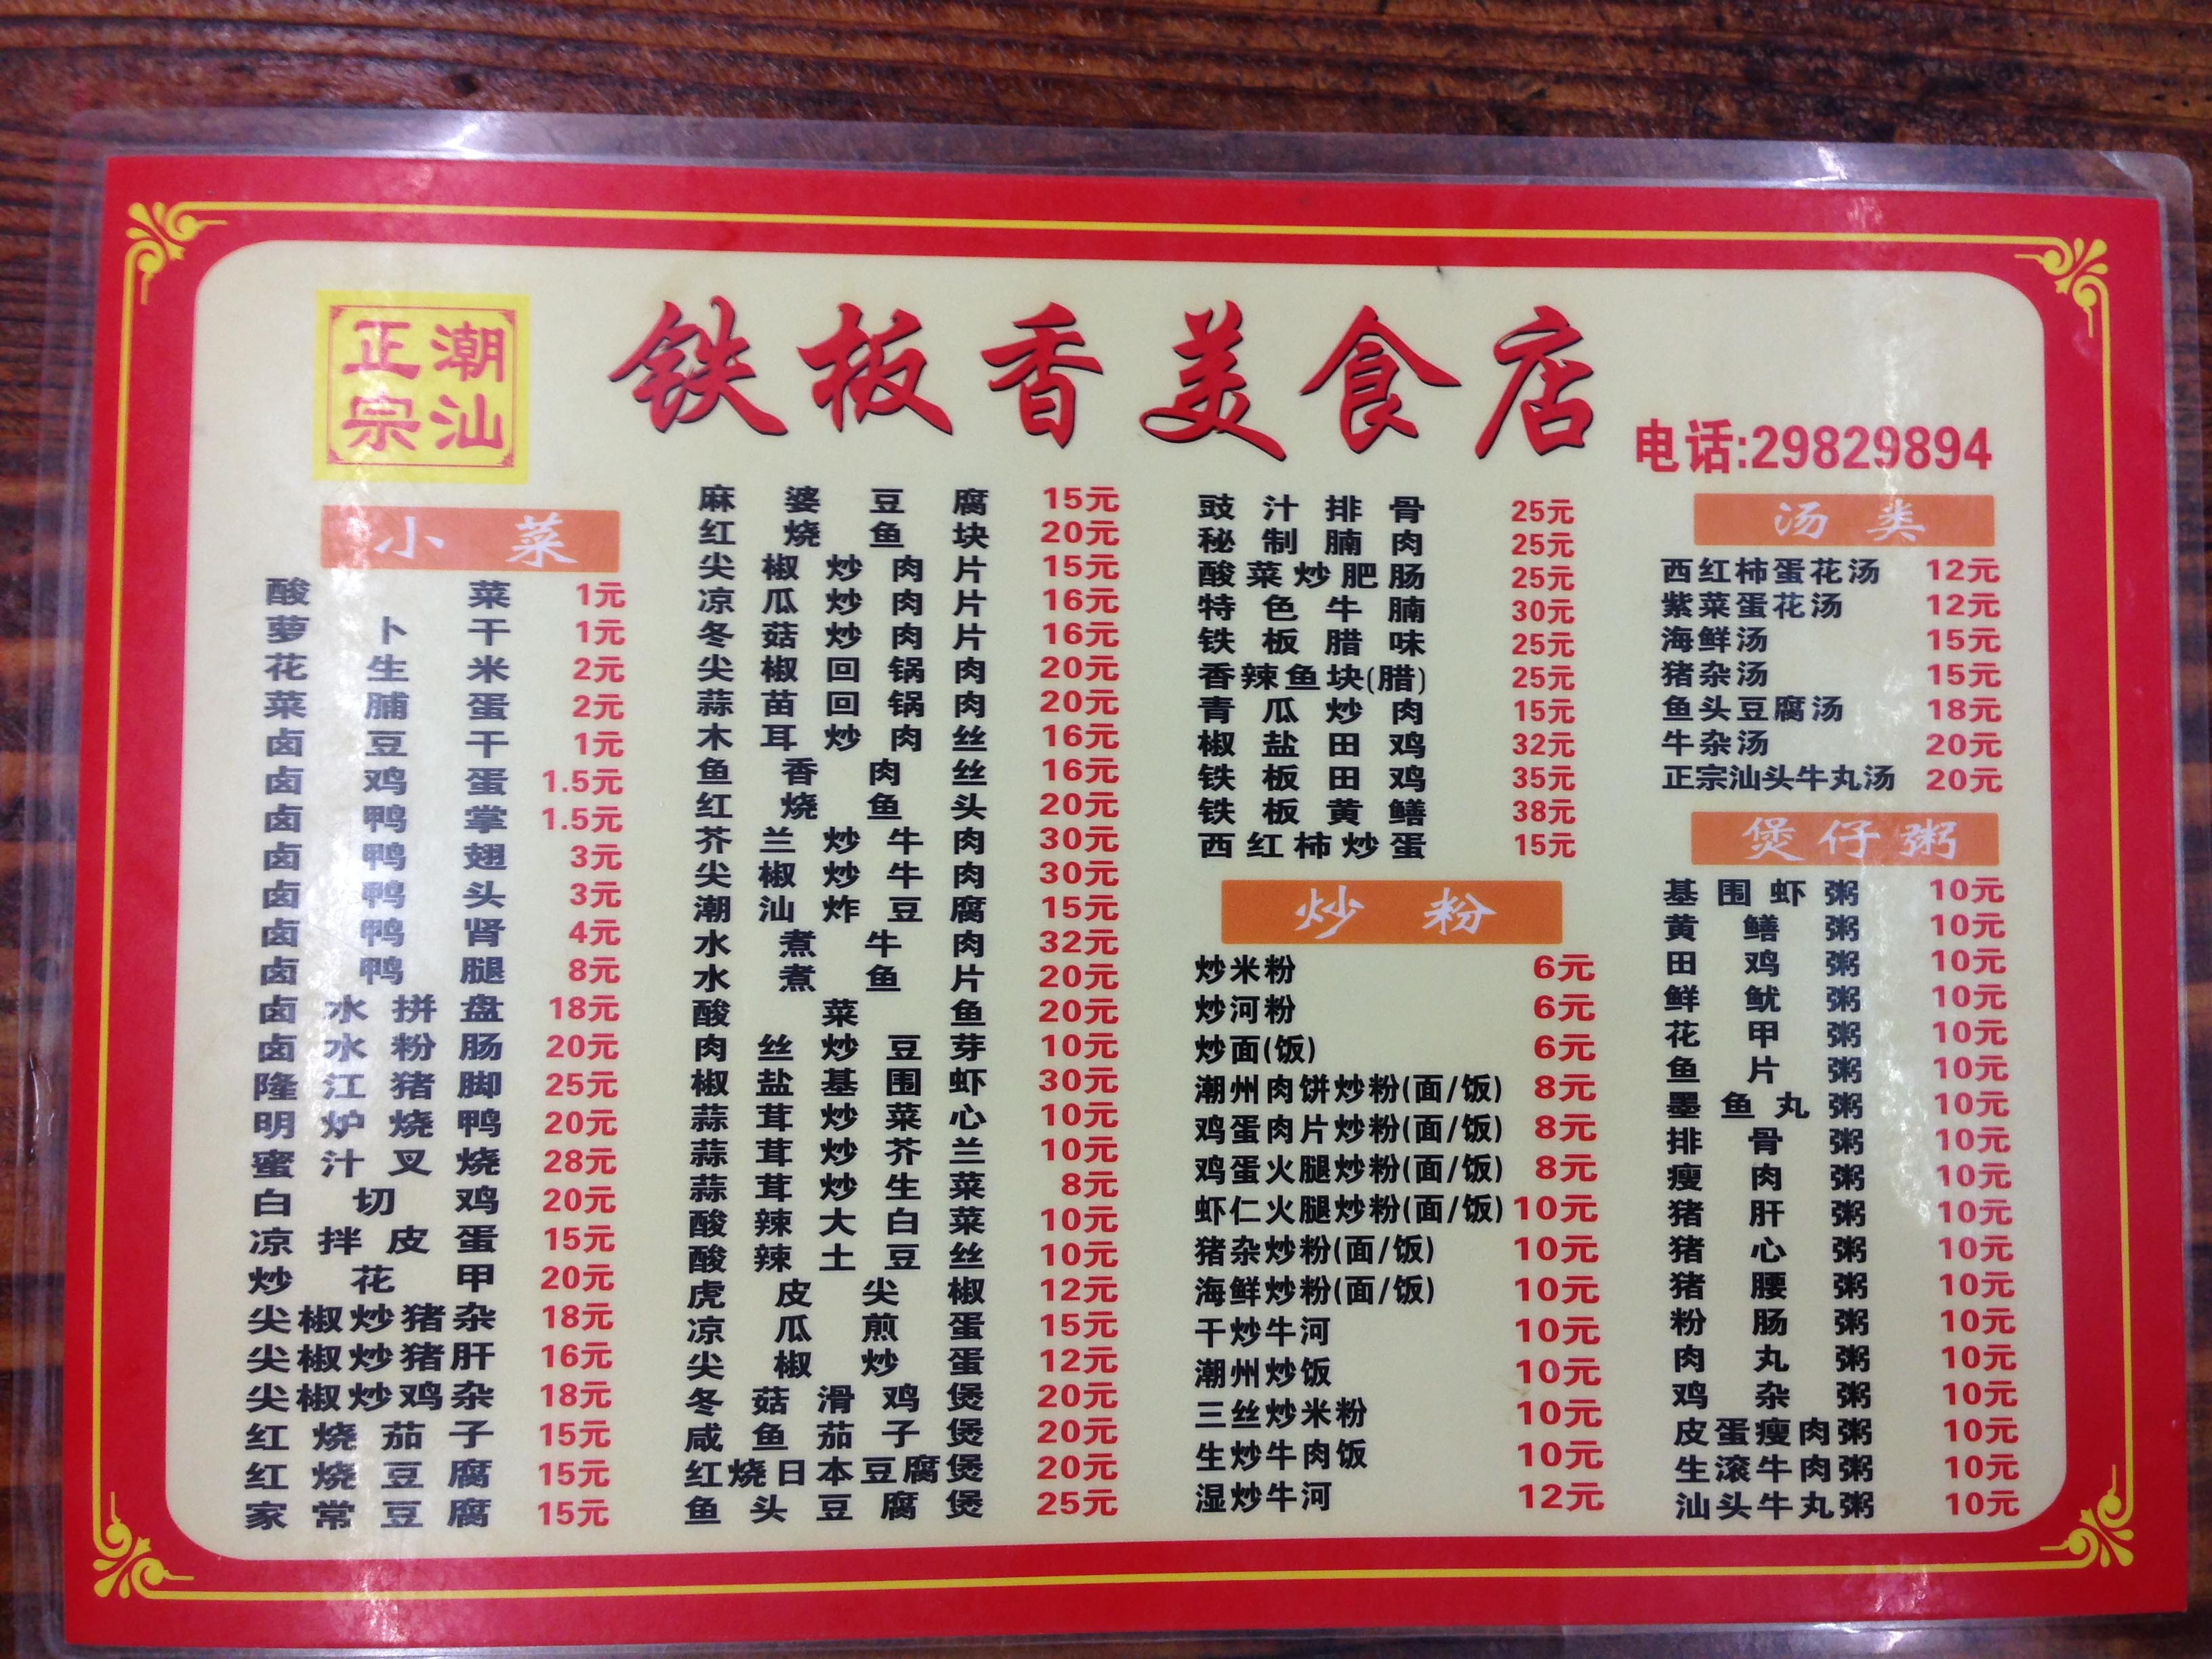 正潮
宗汕
铁板香美食店
电话:29829894
小菜
酸菜 1元
萝卜干 1元
花生米 2元
菜脯蛋 2元
卤豆干 1元
卤鸡蛋 1.5元
卤鸭掌 1.5元
卤鸭翅 3元
卤鸭头 3元
卤鸭肾 4元
卤鸭腿 8元
卤水拼盘 18元
卤水粉肠 20元
隆江猪脚 25元
明炉烧鸭 20元
蜜汁叉烧 28元
白切鸡 20元
凉拌皮蛋 15元
炒花甲 20元
尖椒炒猪杂 18元
尖椒炒猪肝 16元
尖椒炒鸡杂 18元
红烧茄子 15元
红烧豆腐 15元
家常豆腐 15元
麻婆豆腐 15元
红烧鱼块 20元
尖椒炒肉片 15元
凉瓜炒肉片 16元
冬菇炒肉片 16元
尖椒回锅肉 20元
蒜苗回锅肉 20元
木耳炒肉丝 16元
鱼香肉丝 16元
红烧鱼头 20元
芥兰炒牛肉 30元
尖椒炒牛肉 30元
潮汕炸豆腐 15元
水煮牛肉 32元
水煮鱼片 20元
酸菜鱼 20元
肉丝炒豆芽 10元
椒盐基围虾 30元
蒜茸炒菜心 10元
蒜茸炒芥兰 10元
蒜茸炒生菜 8元
酸辣大白菜 10元
酸辣土豆丝 10元
虎皮尖椒 12元
凉瓜煎蛋 15元
尖椒炒蛋 12元
冬菇滑鸡煲 20元
咸鱼茄子煲 20元
红烧日本豆腐煲 20元
鱼头豆腐煲 25元
豉汁排骨 25元
秘制腩肉 25元
酸菜炒肥肠 25元
特色牛腩 30元
铁板腊味 25元
香辣鱼块(腊) 25元
青瓜炒肉 15元
椒盐田鸡 32元
铁板田鸡 35元
铁板黄鳝 38元
西红柿炒蛋 15元
炒粉
炒米粉 6元
炒河粉 6元
炒面(饭) 6元
潮州肉饼炒粉(面/饭) 8元
鸡蛋肉片炒粉(面/饭) 8元
鸡蛋火腿炒粉(面/饭) 8元
虾仁火腿炒粉(面/饭) 10元
猪杂炒粉(面/饭) 10元
海鲜炒粉(面/饭) 10元
干炒牛河 10元
潮州炒饭 10元
三丝炒米粉 10元
生炒牛肉饭 10元
湿炒牛河 12元
汤类
西红柿蛋花汤 12元
紫菜蛋花汤 12元
海鲜汤 15元
猪杂汤 15元
鱼头豆腐汤 18元
牛杂汤 20元
正宗汕头牛丸汤 20元
煲仔粥
基围虾粥 10元
黄鳝粥 10元
田鸡粥 10元
鲜鱿粥 10元
花甲粥 10元
鱼片粥 10元
墨鱼丸粥 10元
排骨粥 10元
瘦肉粥 10元
猪肝粥 10元
猪心粥 10元
猪腰粥 10元
粉肠粥 10元
肉丸粥 10元
鸡杂粥 10元
皮蛋瘦肉粥 10元
生滚牛肉粥 10元
汕头牛丸粥 10元